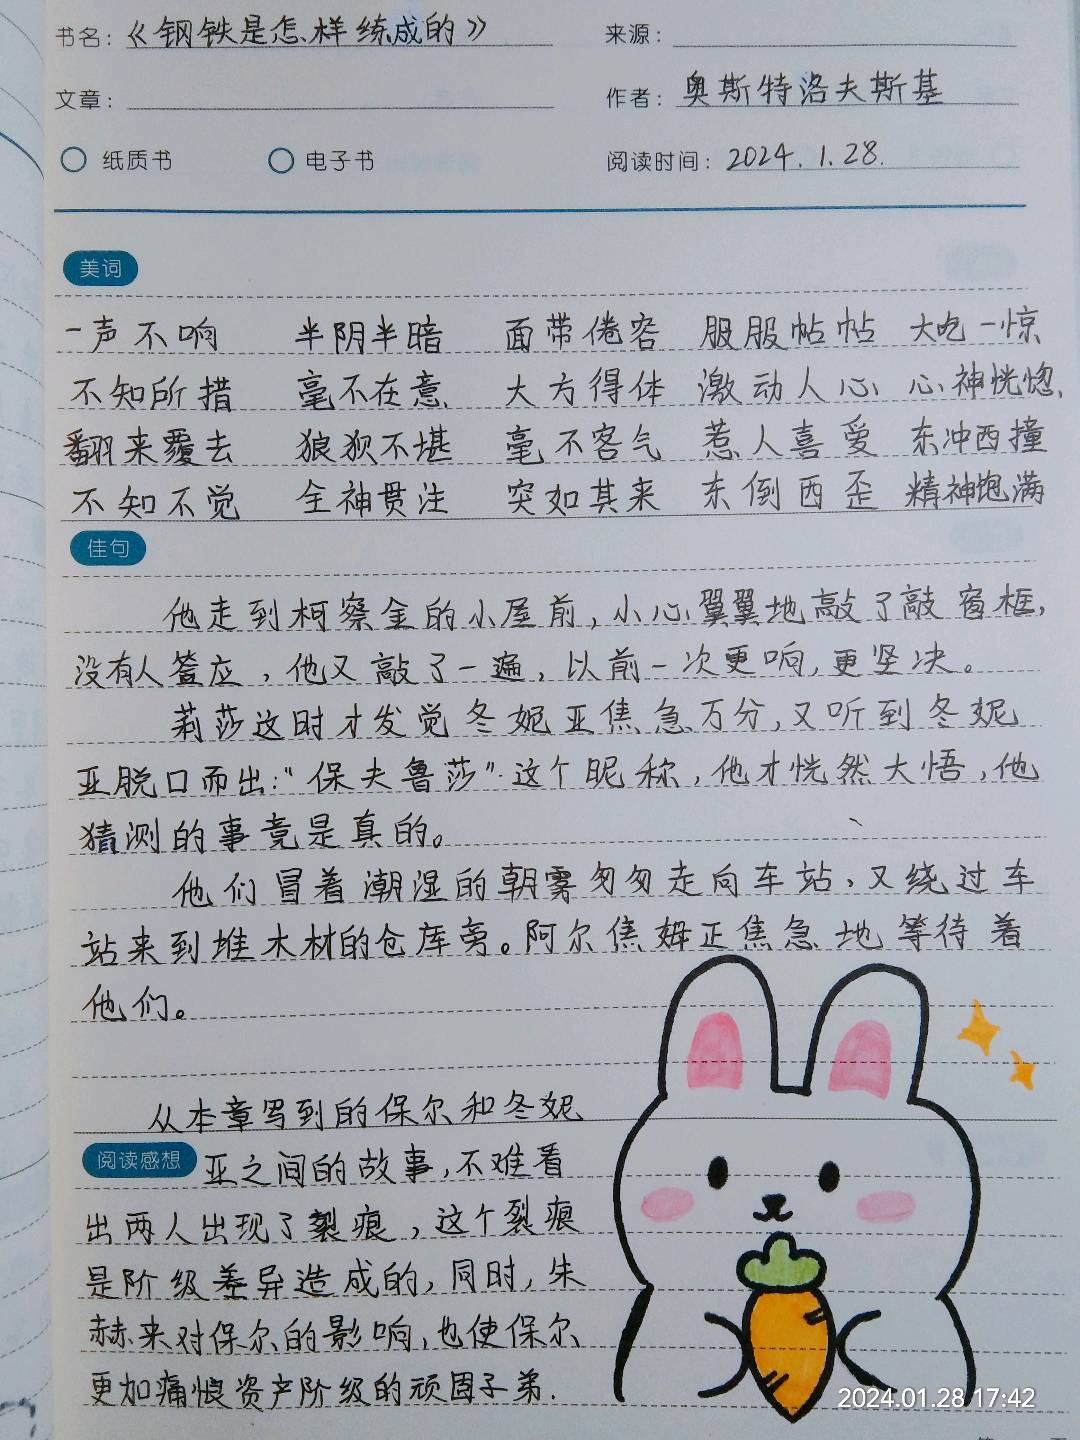 书名：《钢铁是怎样练成的》
来源：
文章：
作者：奥斯特洛夫斯基
纸质书 电子书
阅读时间：2024.1.28.
美词
一声不响 半阴半暗 面带倦容 服服帖帖 大吃一惊
不知所措 毫不在意 大方得体 激动人心 心神恍惚
翻来覆去 狼狈不堪 毫不客气 惹人喜爱 东冲西撞
不知不觉 全神贯注 突如其来 东倒西歪 精神饱满
佳句
他走到柯察金的小屋前，小心翼翼地敲了敲窗框，
没有人答应，他又敲了一遍，以前一次更响，更坚决。
莉莎这时才发觉冬妮亚焦急万分，又听到冬妮
亚脱口而出：“保夫鲁莎”这个昵称，他才恍然大悟，他
猜测的事竟是真的。
他们冒着潮湿的朝雾匆匆走向车站，又绕过车
站来到堆木材的仓库旁。阿尔焦姆正焦急地等待着
他们。
从本章写到的保尔和冬妮
阅读感想 亚之间的故事，不难看
出两人出现了裂痕，这个裂痕
是阶级差异造成的，同时，朱
赫来对保尔的影响，也使保尔
更加痛恨资产阶级的顽固子弟.
2024.01.28 17:42